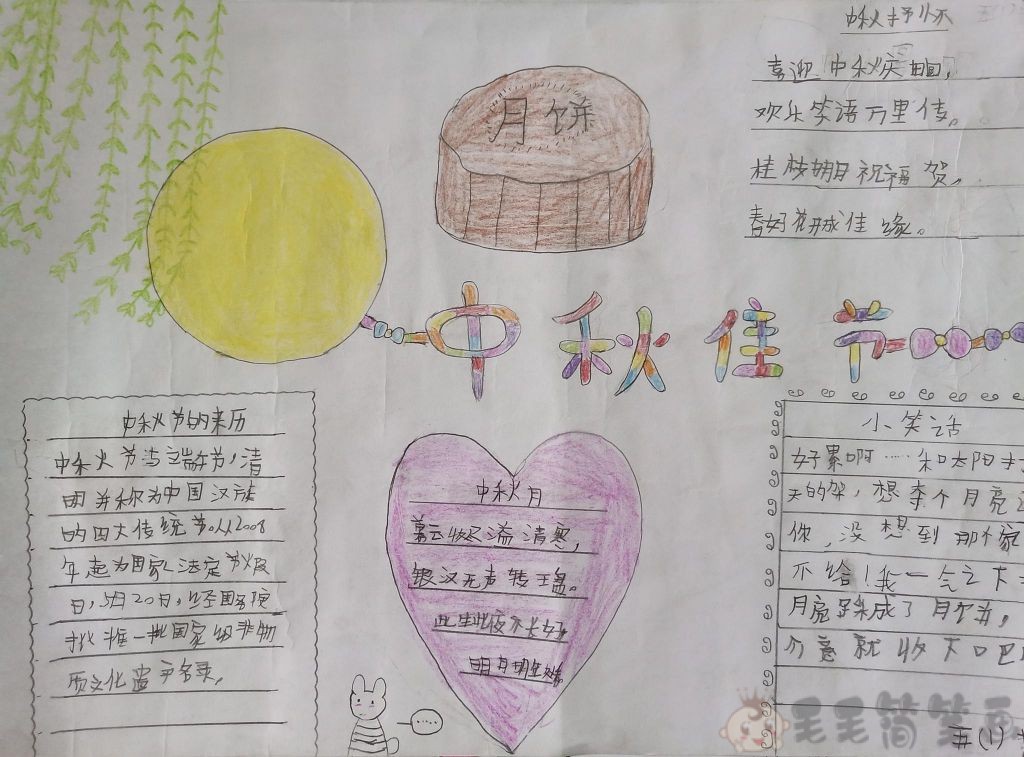 中秋抒怀
喜迎中秋庆团圆,
欢乐笑语万里传。
桂枝明月祝福贺,
春好花城佳缘。
月饼
中秋佳节
中秋节的来历
中秋节与端午节,清
明并称为中国汉族
的四大传统节。从2008
年起为国家法定节假
日,5月20日,经国务院
批准一批国家级非物
质文化遗产名录,
中秋月
暮云收尽溢清寒,
银汉无声转玉盘。
此生此夜不长好,
明月明年
小笑话
好累啊……和太阳打
天的架,想夺个月亮
你,没想到那个家
不给!我一气之下
月亮踩成了月饼,
介意就收下吧
五(1)
毛毛简笔画